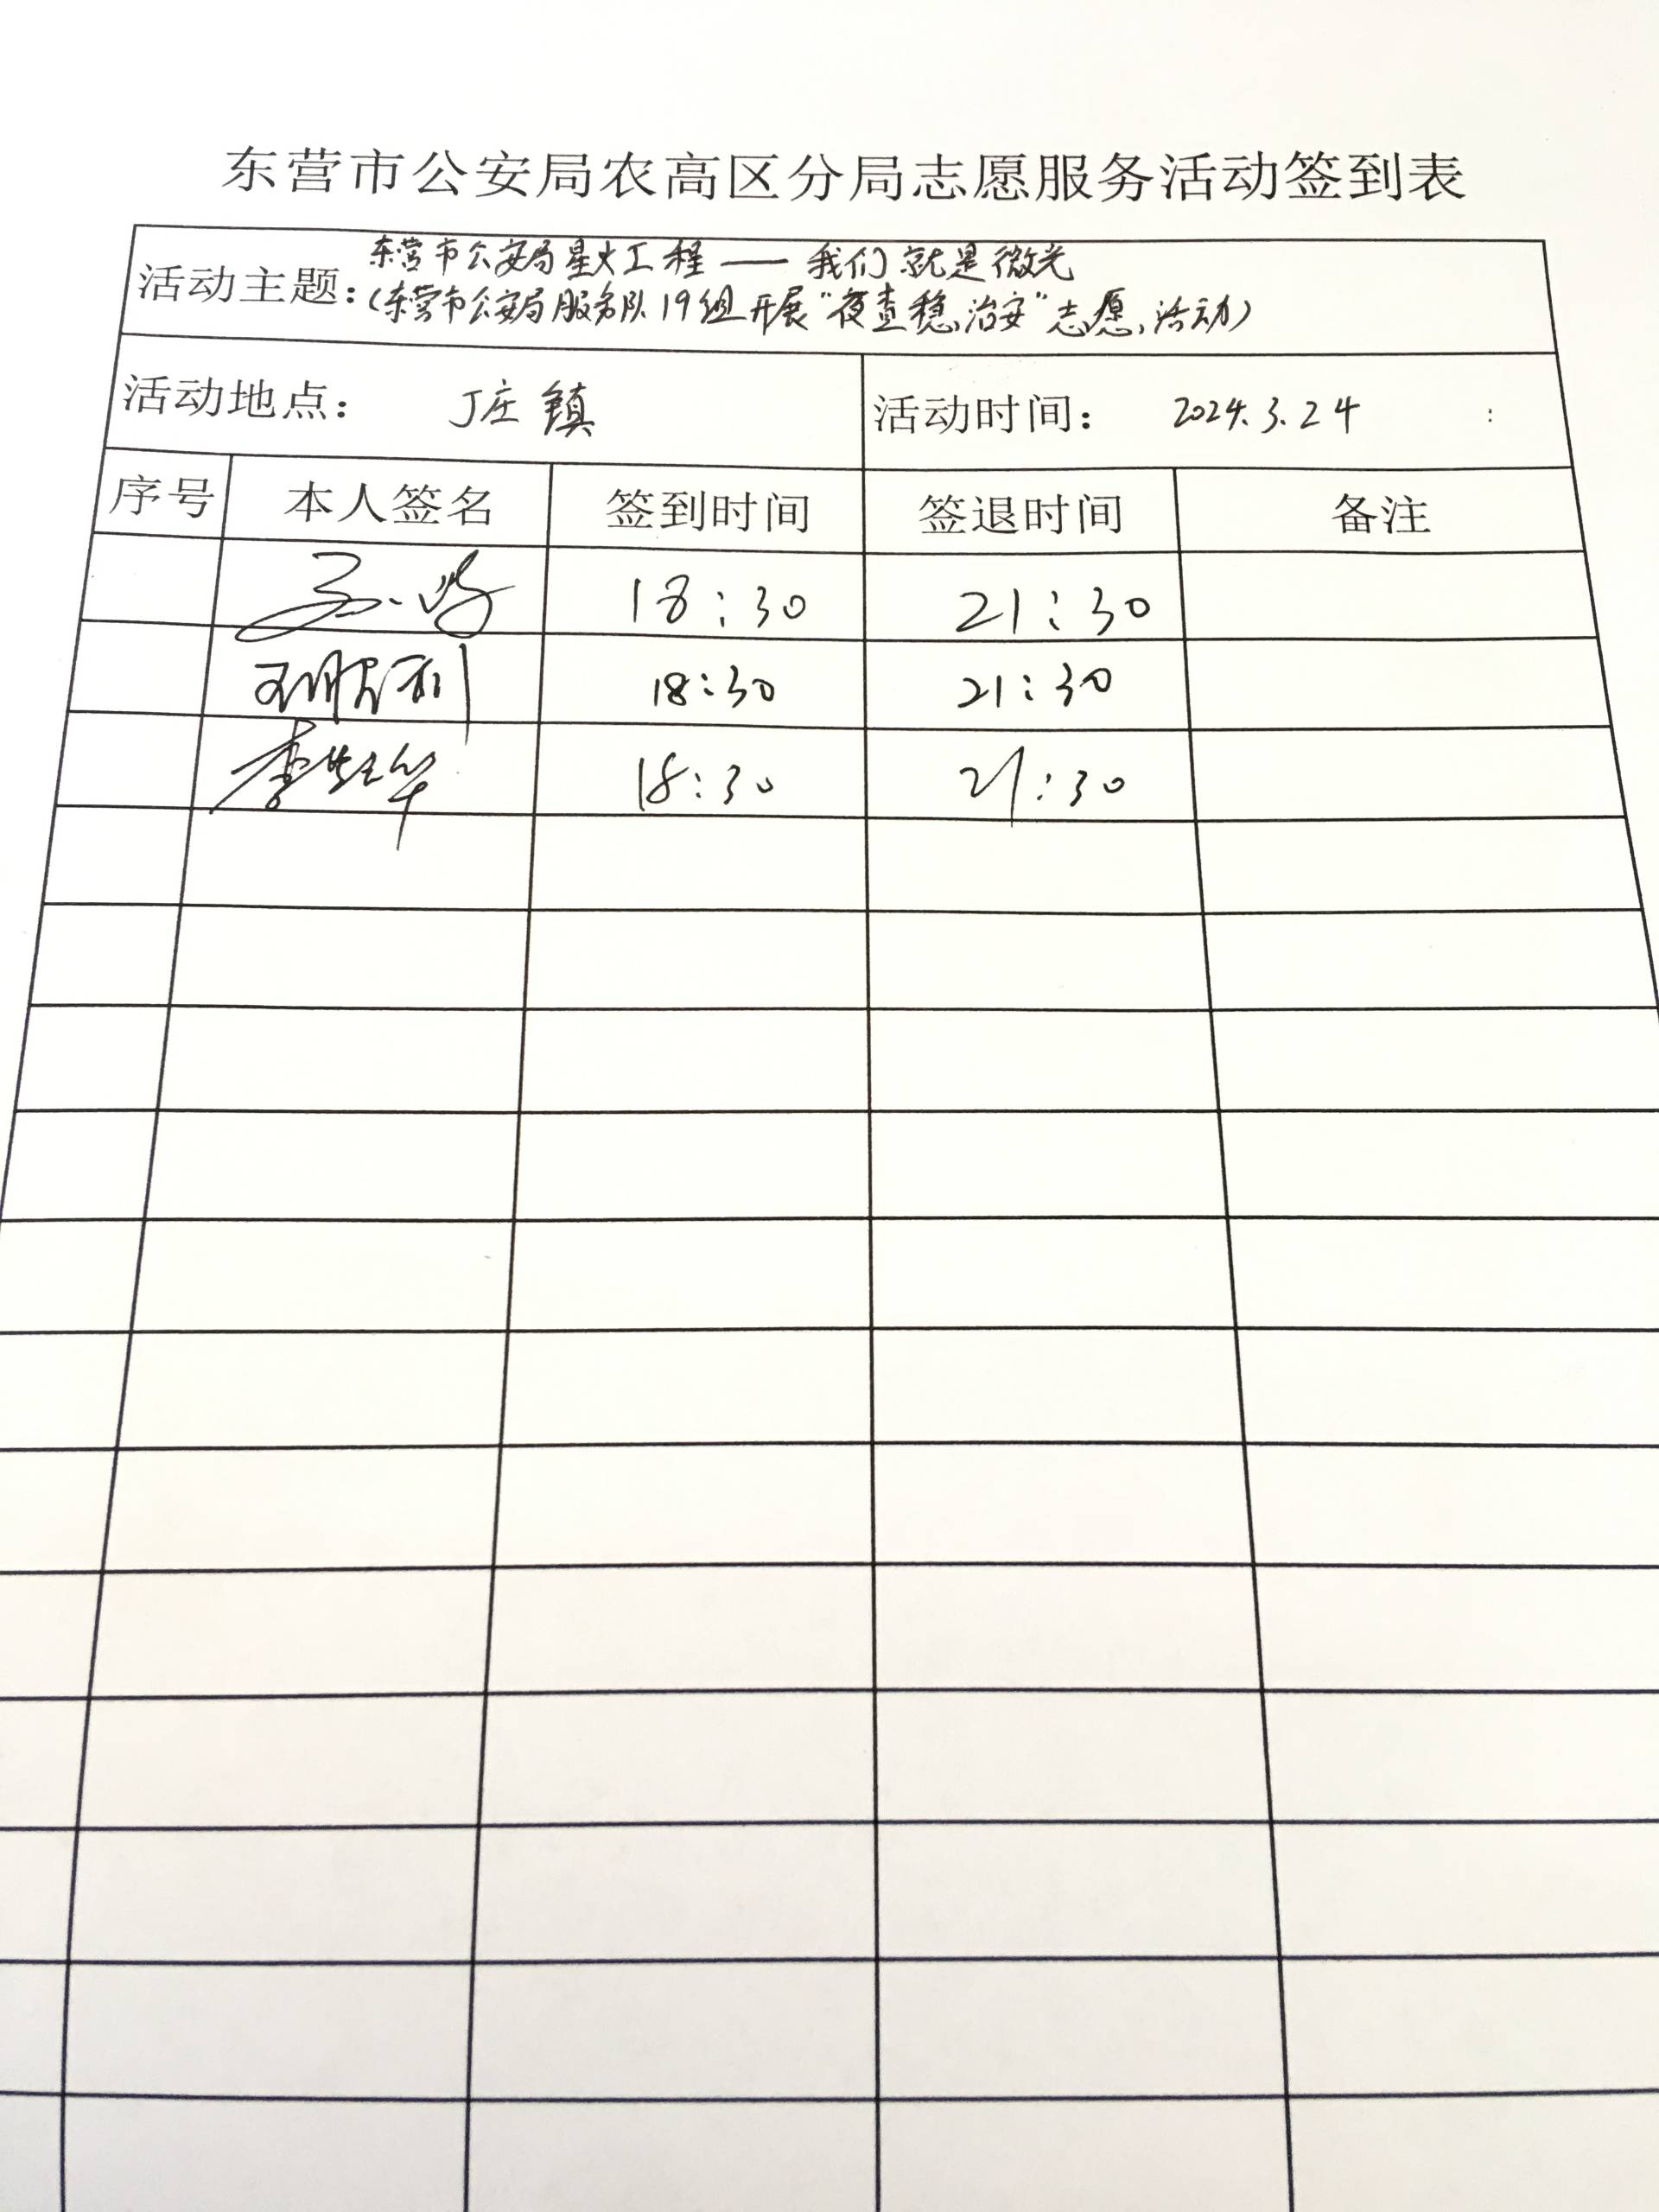 东营市公安局农高区分局志愿服务活动签到表
东营市公安局星火工程——我们就是微光
活动主题：(东营市公安局服务队19组开展"夜查稳治安"志愿活动)
活动地点： 丁庄镇 活动时间： 2024.3.24 :
序号 本人签名 签到时间 签退时间 备注
18:30 21:30
18:30 21:30
李 华 18:30 21:30